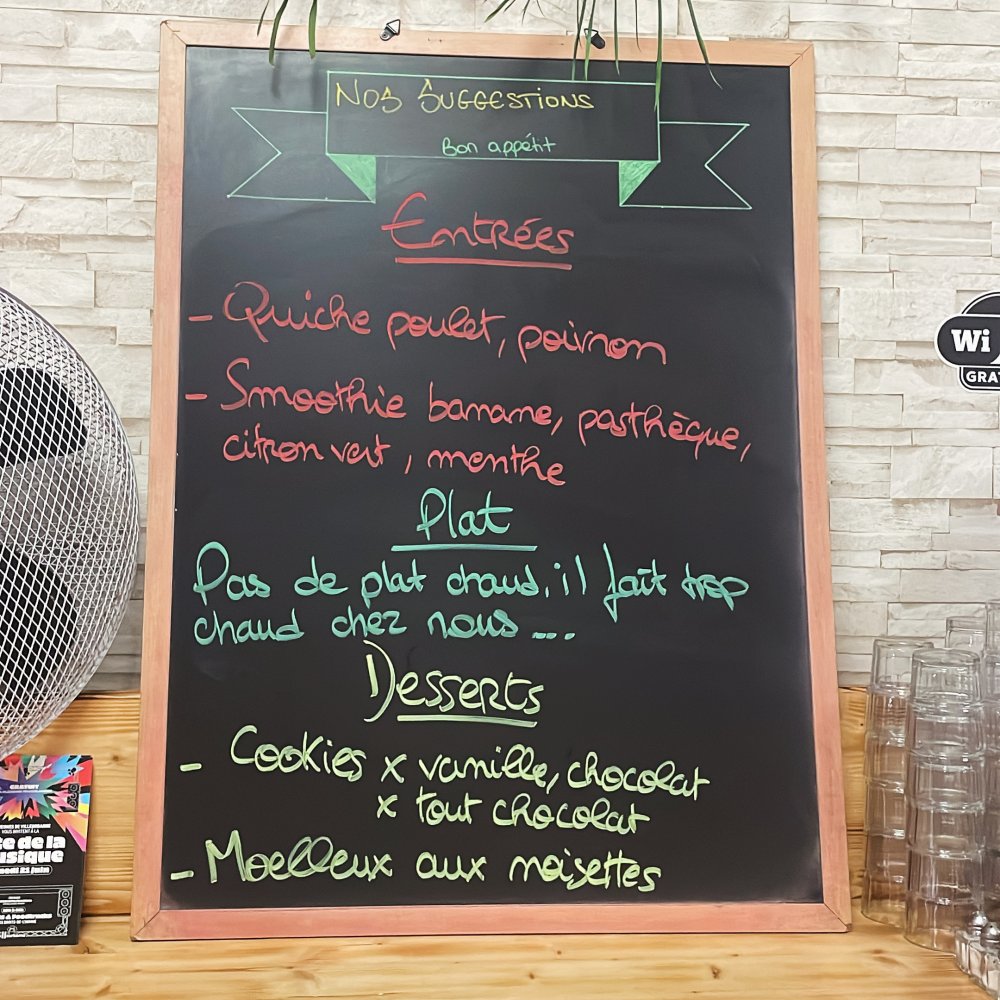 Nos Suggestions
Bon appétit
Entrées
- Quiche poulet, poivron
- Smoothie banane, pasthèque,
citron vert, menthe
Plat
Pas de plat chaud, il fait trop
chaud chez nous ...
Desserts
- Cookies x vanille, chocolat
x tout chocolat
- Moelleux aux noisettes
Wi
GRATUIT
VOUS INVITENT À LA
te de la
usique
edi 21 juin